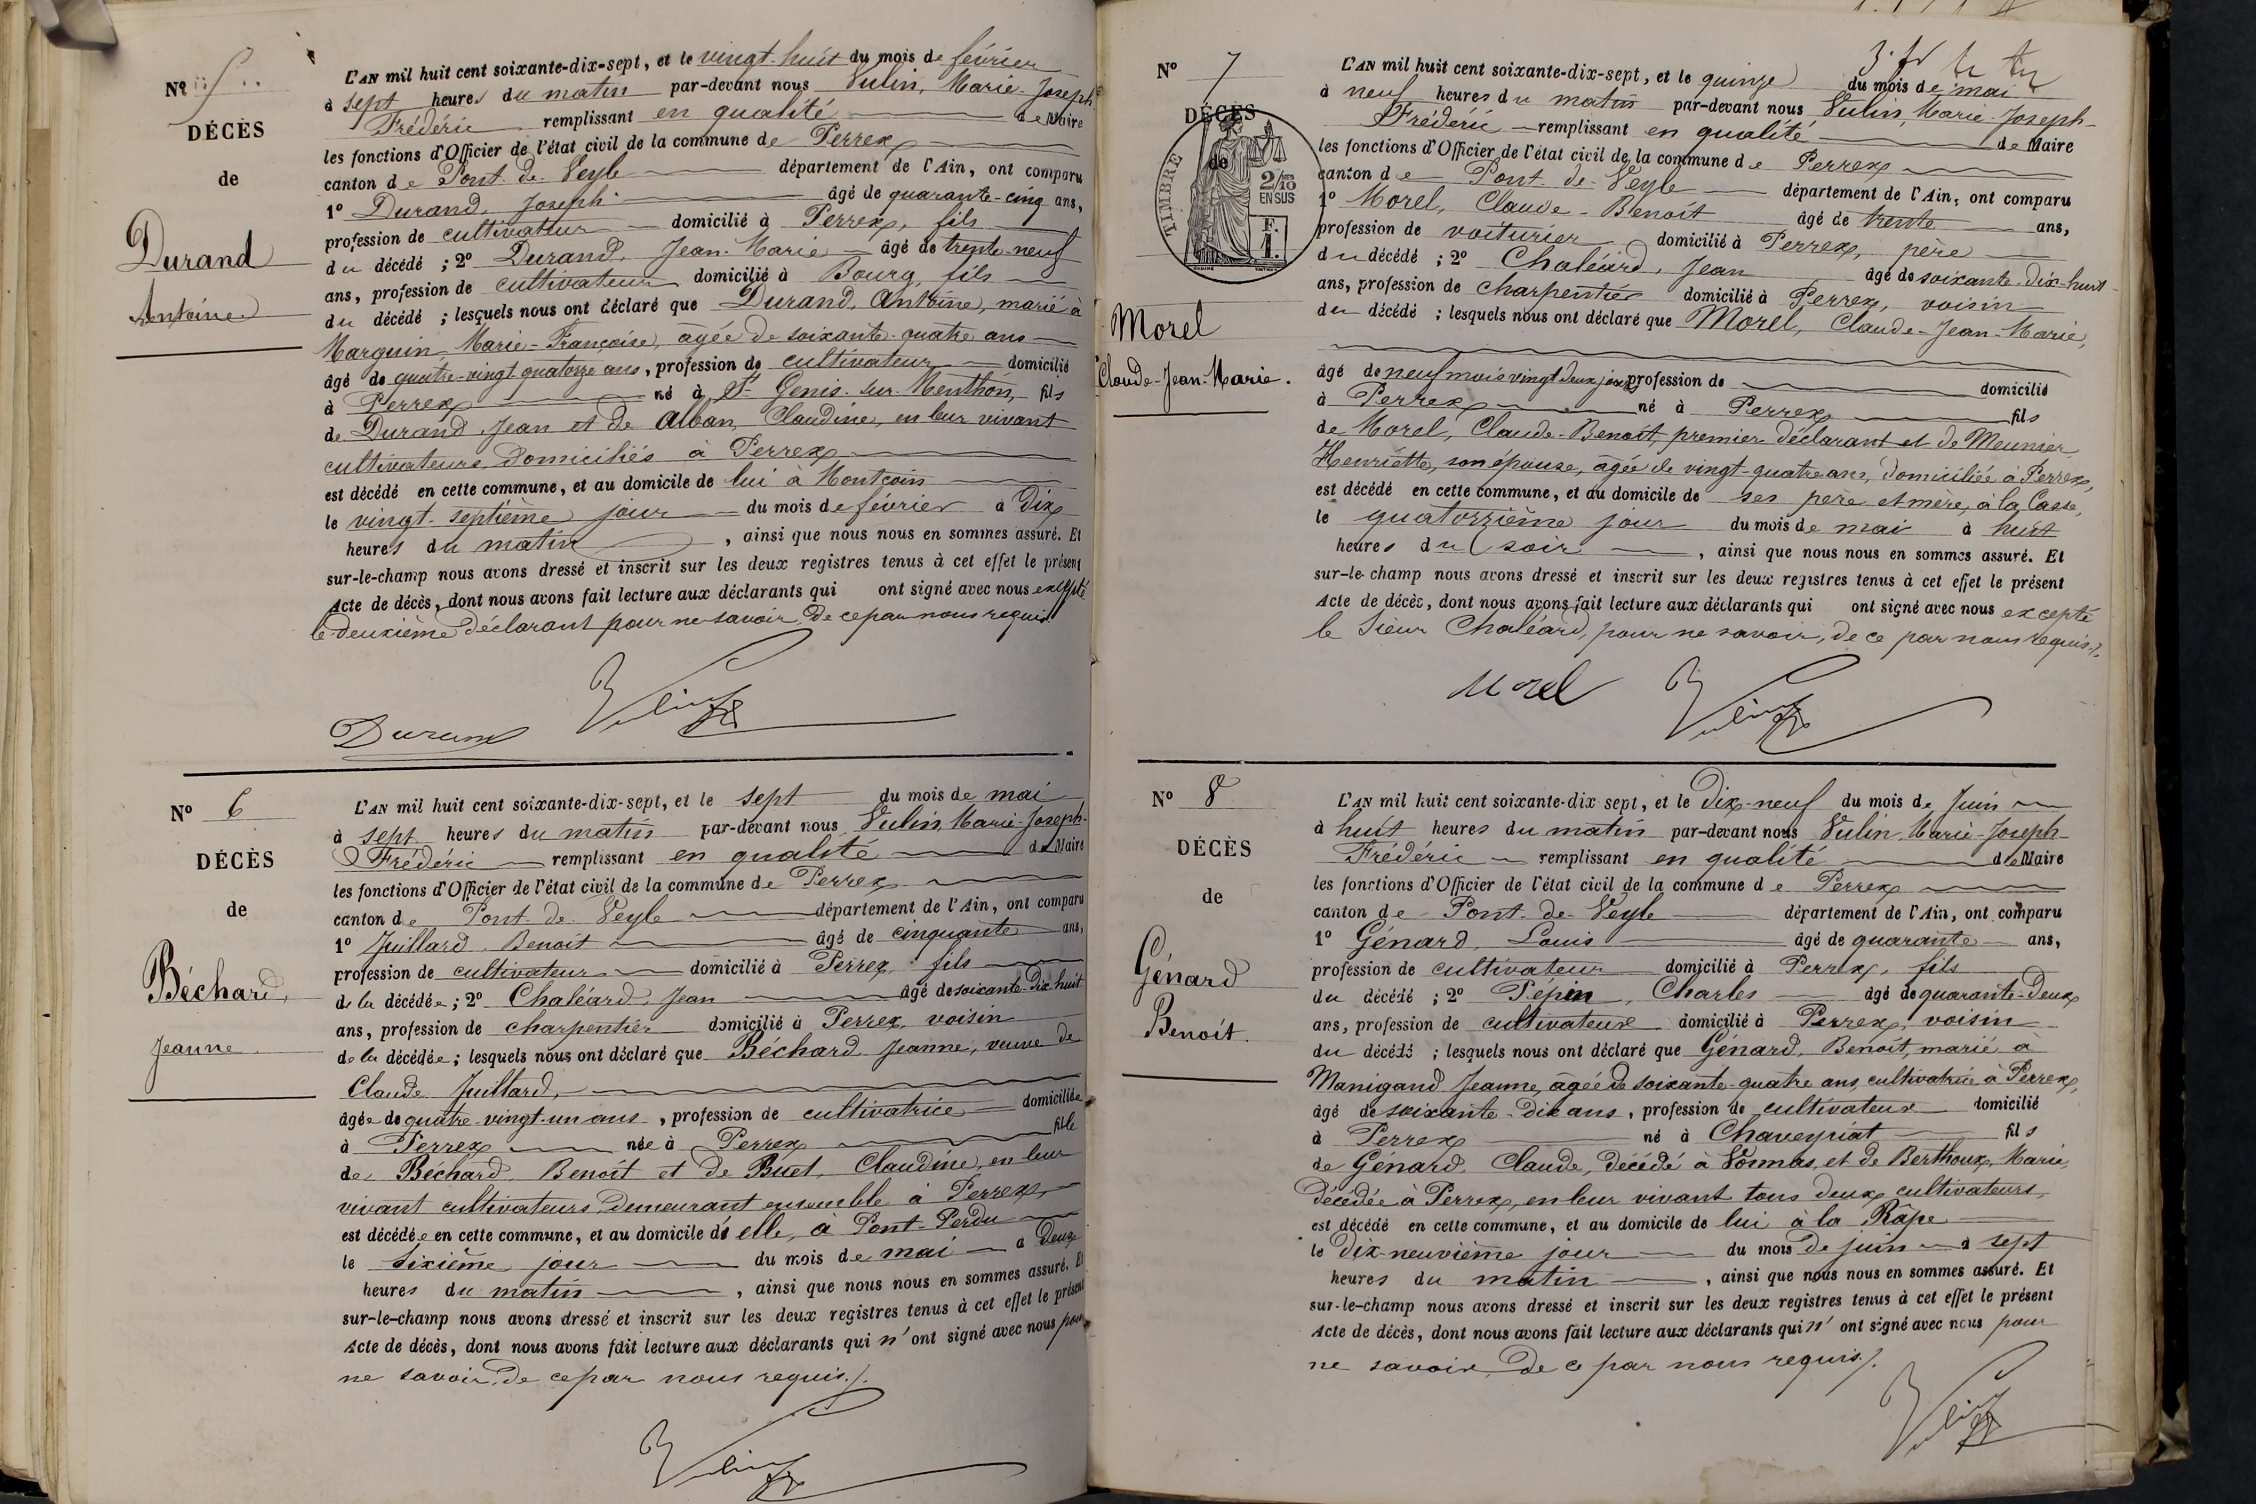 Nº 5
DÉCÈS
de
Durand
Antoine
L'AN mil huit cent soixante-dix-sept, et le vingt-huit du mois de février
à sept heures du matin par-devant nous Vulin, Marie-Joseph
Frédéric remplissant en qualité de Maire
les fonctions d'Officier de l'état civil de la commune de Perrex
canton de Pont-de-Veyle département de l'Ain, ont comparu
1º Durand, Joseph âgé de quarante-cinq ans,
profession de cultivateur domicilié à Perrex, fils
du décédé ; 2º Durand, Jean-Marie âgé de trente-neuf
ans, profession de cultivateur domicilié à Bourg, fils
du décédé ; lesquels nous ont déclaré que Durand, Antoine, marié à
Marguin, Marie-Françoise, âgée de soixante-quatre ans
âgé de quatre-vingt-quatorze ans, profession de cultivateur domicilié
à Perrex né à St Genis-sur-Menthon, fils
de Durand Jean et de Alban, Claudine, en leur vivant
cultivateurs domiciliés à Perrex
est décédé en cette commune, et au domicile de lui à Montcoin
le vingt-septième jour du mois de février à dix
heures du matin, ainsi que nous nous en sommes assuré. Et
sur-le-champ nous avons dressé et inscrit sur les deux registres tenus à cet effet le présent
Acte de décès, dont nous avons fait lecture aux déclarants qui ont signé avec nous excepté
le deuxième déclarant pour ne savoir, de ce par nous requis
Durand Vulin
Nº 6
DÉCÈS
de
Béchard,
Jeanne
L'AN mil huit cent soixante-dix-sept, et le sept du mois de mai
à sept heures du matin par-devant nous Vulin, Marie-Joseph-
Frédéric remplissant en qualité de Maire
les fonctions d'Officier de l'état civil de la commune de Perrex
canton de Pont-de-Veyle département de l'Ain, ont comparu
1º Juillard, Benoit âgé de cinquante ans,
profession de cultivateur domicilié à Perrex, fils
de la décédée ; 2º Chaléard, Jean âgé de soixante-dix-huit
ans, profession de charpentier domicilié à Perrex, voisin
de la décédée ; lesquels nous ont déclaré que Béchard Jeanne, veuve de
Claude Juillard,
âgée de quatre-vingt-un ans, profession de cultivatrice domiciliée
à Perrex née à Perrex fille
de Béchard, Benoît et de Buet, Claudine, en leur
vivant cultivateurs demeurant ensemble à Perrex,
est décédée en cette commune, et au domicile d'elle, à Pont-Perdu
le sixième jour du mois de mai à deux
heures du matin, ainsi que nous nous en sommes assuré. Et
sur-le-champ nous avons dressé et inscrit sur les deux registres tenus à cet effet le présent
Acte de décès, dont nous avons fait lecture aux déclarants qui n'ont signé avec nous pour
ne savoir, de ce par nous requis./.
Vulin
Nº 7
DÉCÈS
de
TIMBRE
2/10 EN SUS
F. 1.
Morel
Claude-Jean-Marie.
L'AN mil huit cent soixante-dix-sept, et le quinze du mois de mai
à neuf heures du matin par-devant nous Vulin, Marie-Joseph-
Frédéric remplissant en qualité de Maire
les fonctions d'Officier de l'état civil de la commune de Perrex
canton de Pont-de-Veyle département de l'Ain, ont comparu
1º Morel, Claude-Benoît âgé de trente ans,
profession de voiturier domicilié à Perrex, père
du décédé ; 2º Chaléard, Jean âgé de soixante-dix-huit
ans, profession de charpentier domicilié à Perrex, voisin
du décédé ; lesquels nous ont déclaré que Morel, Claude-Jean-Marie,
âgé de neuf mois vingt deux jours profession de domicilié
à Perrex né à Perrex fils
de Morel, Claude-Benoît, premier déclarant et de Meunier
Henriette, son épouse, âgée de vingt-quatre ans, domiciliée à Perrex,
est décédé en cette commune, et au domicile de ses père et mère, à la Casse,
le quatorzième jour du mois de mai à huit
heures du soir, ainsi que nous nous en sommes assuré. Et
sur-le-champ nous avons dressé et inscrit sur les deux registres tenus à cet effet le présent
Acte de décès, dont nous avons fait lecture aux déclarants qui ont signé avec nous excepté
le sieur Chaléard, pour ne savoir, de ce par nous requis./.
Morel Vulin
Nº 8
DÉCÈS
de
Génard
Benoît.
L'AN mil huit cent soixante-dix sept, et le dix-neuf du mois de Juin
à huit heures du matin par-devant nous Vulin Marie-Joseph-
Frédéric remplissant en qualité de Maire
les fonctions d'Officier de l'état civil de la commune de Perrex
canton de Pont-de-Veyle département de l'Ain, ont comparu
1º Génard, Louis âgé de quarante ans,
profession de cultivateur domicilié à Perrex, fils
du décédé ; 2º Pépin, Charles âgé de quarante-deux
ans, profession de cultivateur domicilié à Perrex, voisin
du décédé ; lesquels nous ont déclaré que Génard, Benoît, marié à
Manigand Jeanne, âgée de soixante-quatre ans, cultivatrice à Perrex,
âgé de soixante-dix ans, profession de cultivateur domicilié
à Perrex né à Chaveyriat fils
de Génard, Claude, décédé à Vonnas, et de Berthoux, Marie,
décédée à Perrex, en leur vivant tous deux cultivateurs,
est décédé en cette commune, et au domicile de lui à la Râpe
le dix-neuvième jour du mois de juin à sept
heures du matin, ainsi que nous nous en sommes assuré. Et
sur-le-champ nous avons dressé et inscrit sur les deux registres tenus à cet effet le présent
Acte de décès, dont nous avons fait lecture aux déclarants qui n'ont signé avec nous pour
ne savoir, de ce par nous requis./.
Vulin